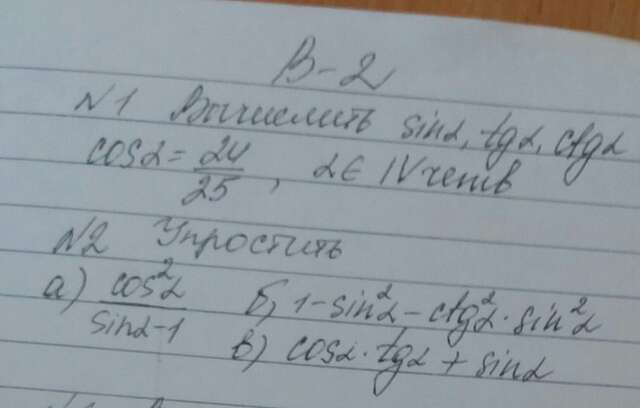 В-2
№1 Вычислить sinα, tgα, ctgα
cosα = 24/25, α ∈ IV четв
№2 Упростить
а) cos²α/(sinα-1) б) 1-sin²α-ctg²α·sin²α
в) cosα·tgα + sinα